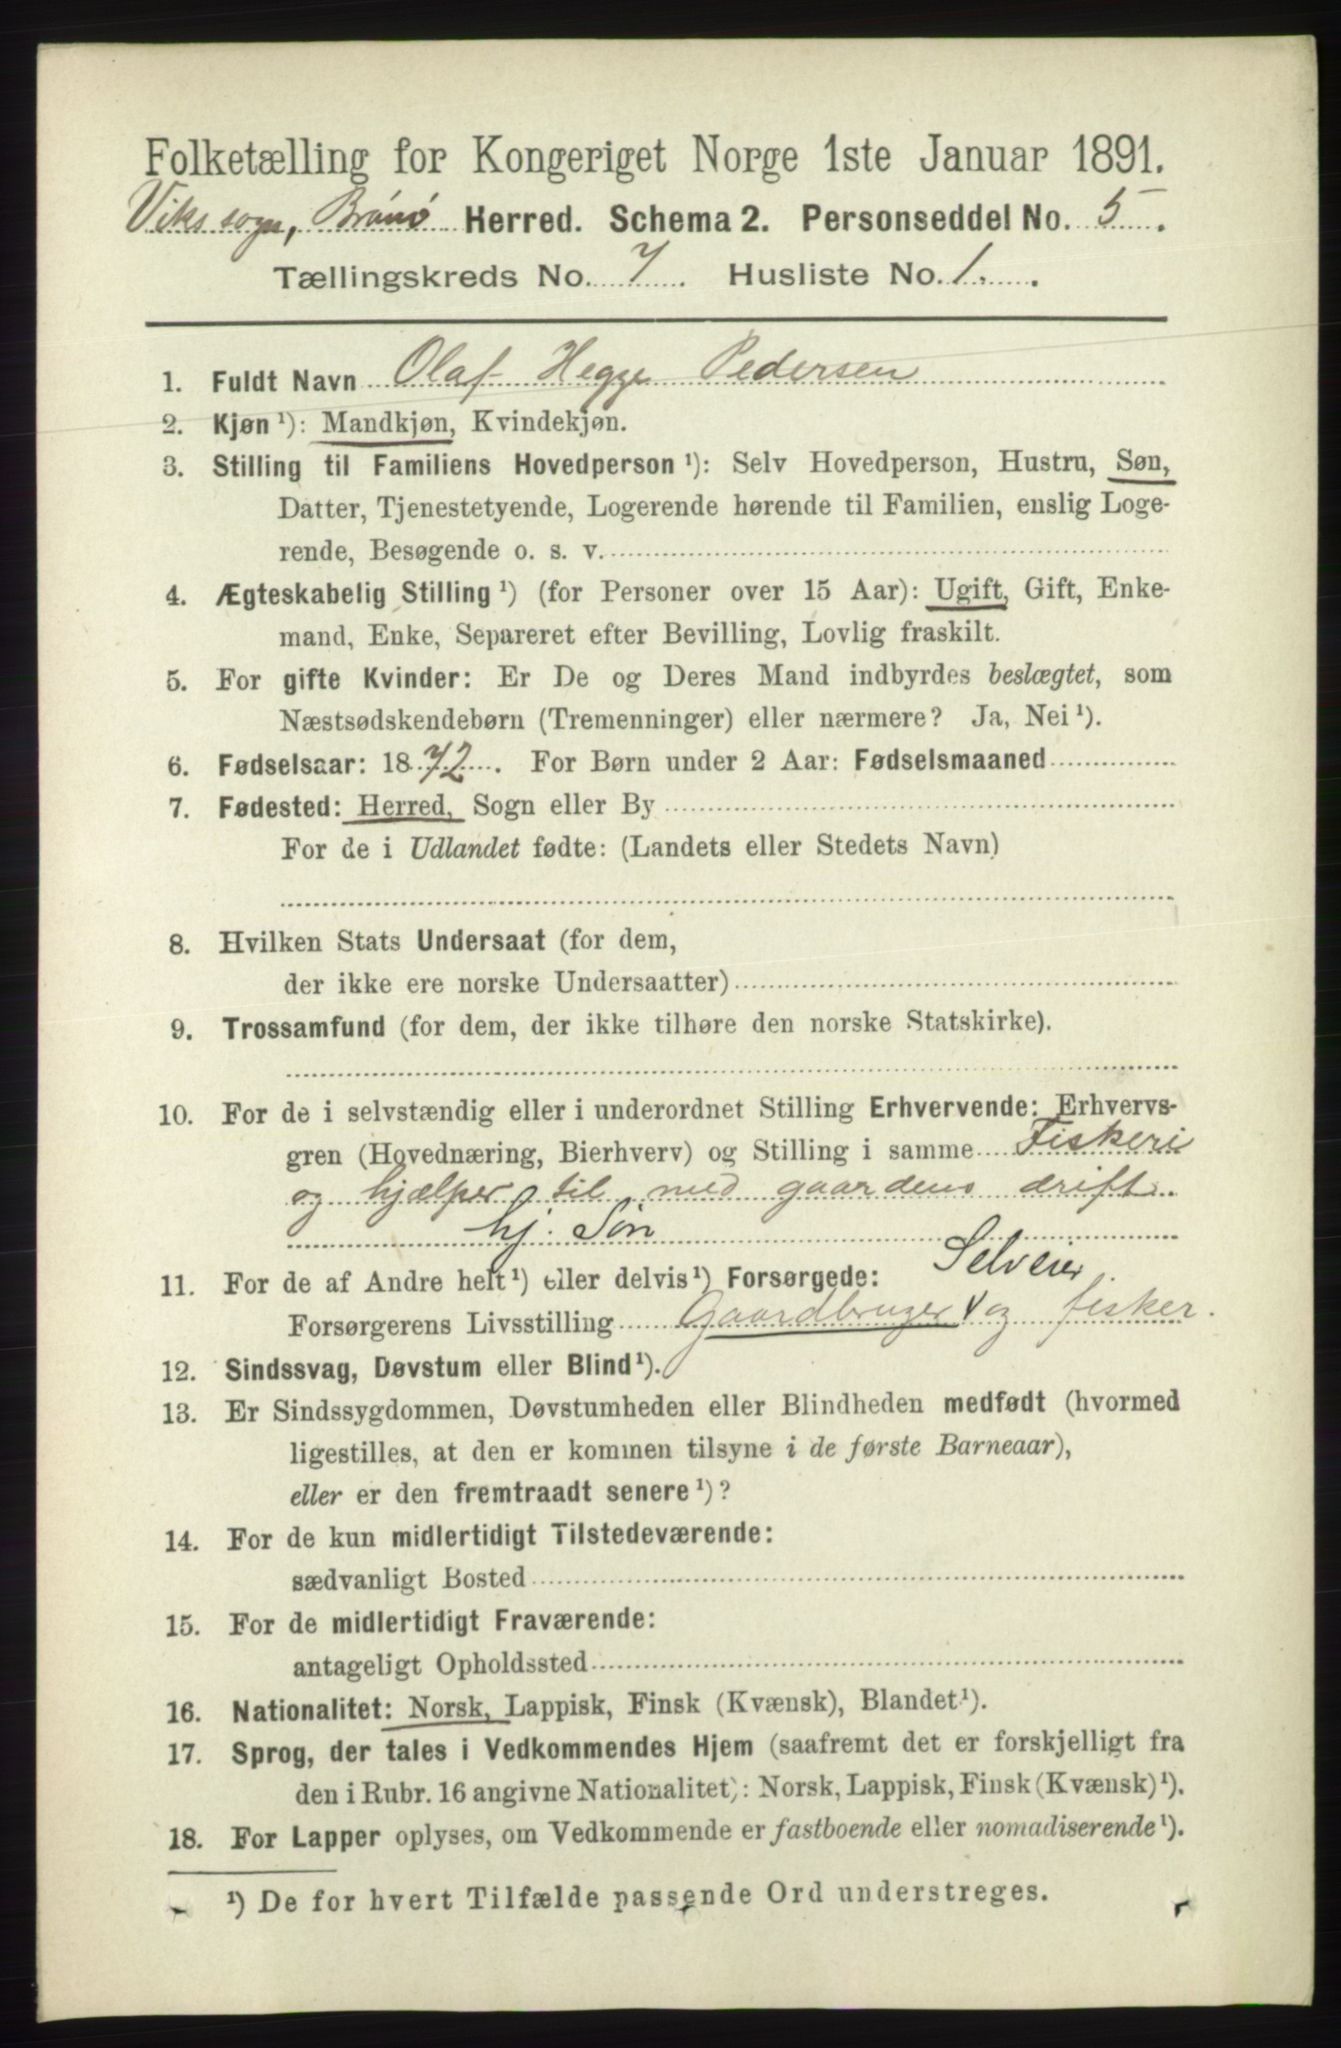 Folketælling for Kongeriget Norge 1ste Januar 1891.
Viks sogn, Brønø Herred. Schema 2. Personseddel No. 5.
Tællingskreds No. 7. Husliste No. 1.
1. Fuldt Navn Olaf Hegge Pedersen
2. Kjøn ¹): Mandkjøn, Kvindekjøn.
3. Stilling til Familiens Hovedperson ¹): Selv Hovedperson, Hustru, Søn,
Datter, Tjenestetyende, Logerende hørende til Familien, enslig Loge-
rende, Besøgende o. s. v.
4. Ægteskabelig Stilling ¹) (for Personer over 15 Aar): Ugift, Gift, Enke-
mand, Enke, Separeret efter Bevilling, Lovlig fraskilt.
5. For gifte Kvinder: Er De og Deres Mand indbyrdes beslægtet, som
Næstsødskendebørn (Tremenninger) eller nærmere? Ja, Nei ¹).
6. Fødselsaar: 1872. For Børn under 2 Aar: Fødselsmaaned
7. Fødested: Herred, Sogn eller By
For de i Udlandet fødte: (Landets eller Stedets Navn)
8. Hvilken Stats Undersaat (for dem,
der ikke ere norske Undersaatter)
9. Trossamfund (for dem, der ikke tilhøre den norske Statskirke).
10. For de i selvstændig eller i underordnet Stilling Erhvervende: Erhvervs-
gren (Hovednæring, Bierhverv) og Stilling i samme Fiskeri
og hjælper til med gaardens drift.
hj. Søn
11. For de af Andre helt ¹) eller delvis ¹) Forsørgede: Selveier
Forsørgerens Livsstilling Gaardbruger og fisker.
12. Sindssvag, Døvstum eller Blind ¹).
13. Er Sindssygdommen, Døvstumheden eller Blindheden medfødt (hvormed
ligestilles, at den er kommen tilsyne i de første Barneaar),
eller er den fremtraadt senere ¹)?
14. For de kun midlertidigt Tilstedeværende:
sædvanligt Bosted
15. For de midlertidigt Fraværende:
antageligt Opholdssted
16. Nationalitet: Norsk, Lappisk, Finsk (Kvænsk), Blandet ¹).
17. Sprog, der tales i Vedkommendes Hjem (saafremt det er forskjelligt fra
den i Rubr. 16 angivne Nationalitet): Norsk, Lappisk, Finsk (Kvænsk) ¹).
18. For Lapper oplyses, om Vedkommende er fastboende eller nomadiserende ¹).
¹) De for hvert Tilfælde passende Ord understreges.